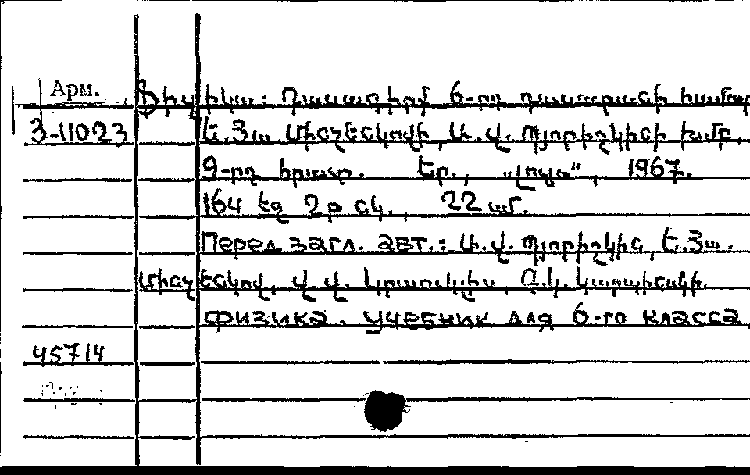 Арм.
Ֆիզիկա: Դասագիրք 6-րդ դասարանի համար
3-11023
Ե. Յա. Մինչենկովի, Ա. Վ. Պյորիշկինի խմբ.
9-րդ հրատ. Եր., „Լույս“, 1967.
164 էջ նկ., 22 սմ.
Перед загл. авт.: Ա. Վ. Պյորիշկին, Ե. Յա.
Մինչենկով, Վ. Վ. Կրաուկլիս,
Физика. Учебник для 6-го класса
45714